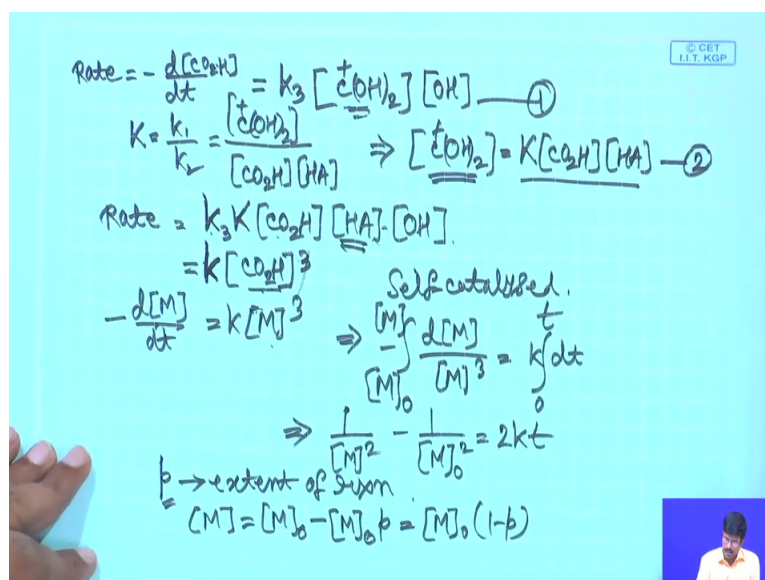 © CET
I.I.T. KGP
Rate = - d[CO₂H]/dt = k₃ [C⁺(OH)₂] [OH] — ①
K = k₁/k₂ = [C⁺(OH)₂]/[CO₂H][HA] ⇒ [C⁺(OH)₂] = K[CO₂H][HA] — ②
Rate = k₃K[CO₂H][HA]·[OH].
= k[CO₂H]³
Self-catalysed.
- d[M]/dt = k[M]³ ⇒ - ∫_{[M]₀}^{[M]} d[M]/[M]³ = k∫₀ᵗ dt
⇒ 1/[M]² - 1/[M]₀² = 2kt
p → extent of rxn
[M] = [M]₀ - [M]₀ p = [M]₀ (1-p)